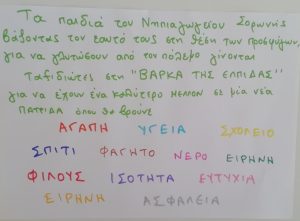 Τα παιδιά του Νηπιαγωγείου Σορωνής
βάζοντας τον εαυτό τους στη θέση των προσφύγων,
για να γλυτώσουν από τον πόλεμο γίνονται
Ταξιδιώτες στη "ΒΑΡΚΑ ΤΗΣ ΕΛΠΙΔΑΣ"
για να έχουν ένα καλύτερο ΜΕΛΛΟΝ σε μία νέα
ΠΑΤΡΙΔΑ όπου θα βρούνε
ΑΓΑΠΗ ΥΓΕΙΑ ΣΧΟΛΕΙΟ
ΣΠΙΤΙ ΦΑΓΗΤΟ ΝΕΡΟ ΕΙΡΗΝΗ
ΦΙΛΟΥΣ ΙΣΟΤΗΤΑ ΕΥΤΥΧΙΑ
ΕΙΡΗΝΗ ΑΣΦΑΛΕΙΑ